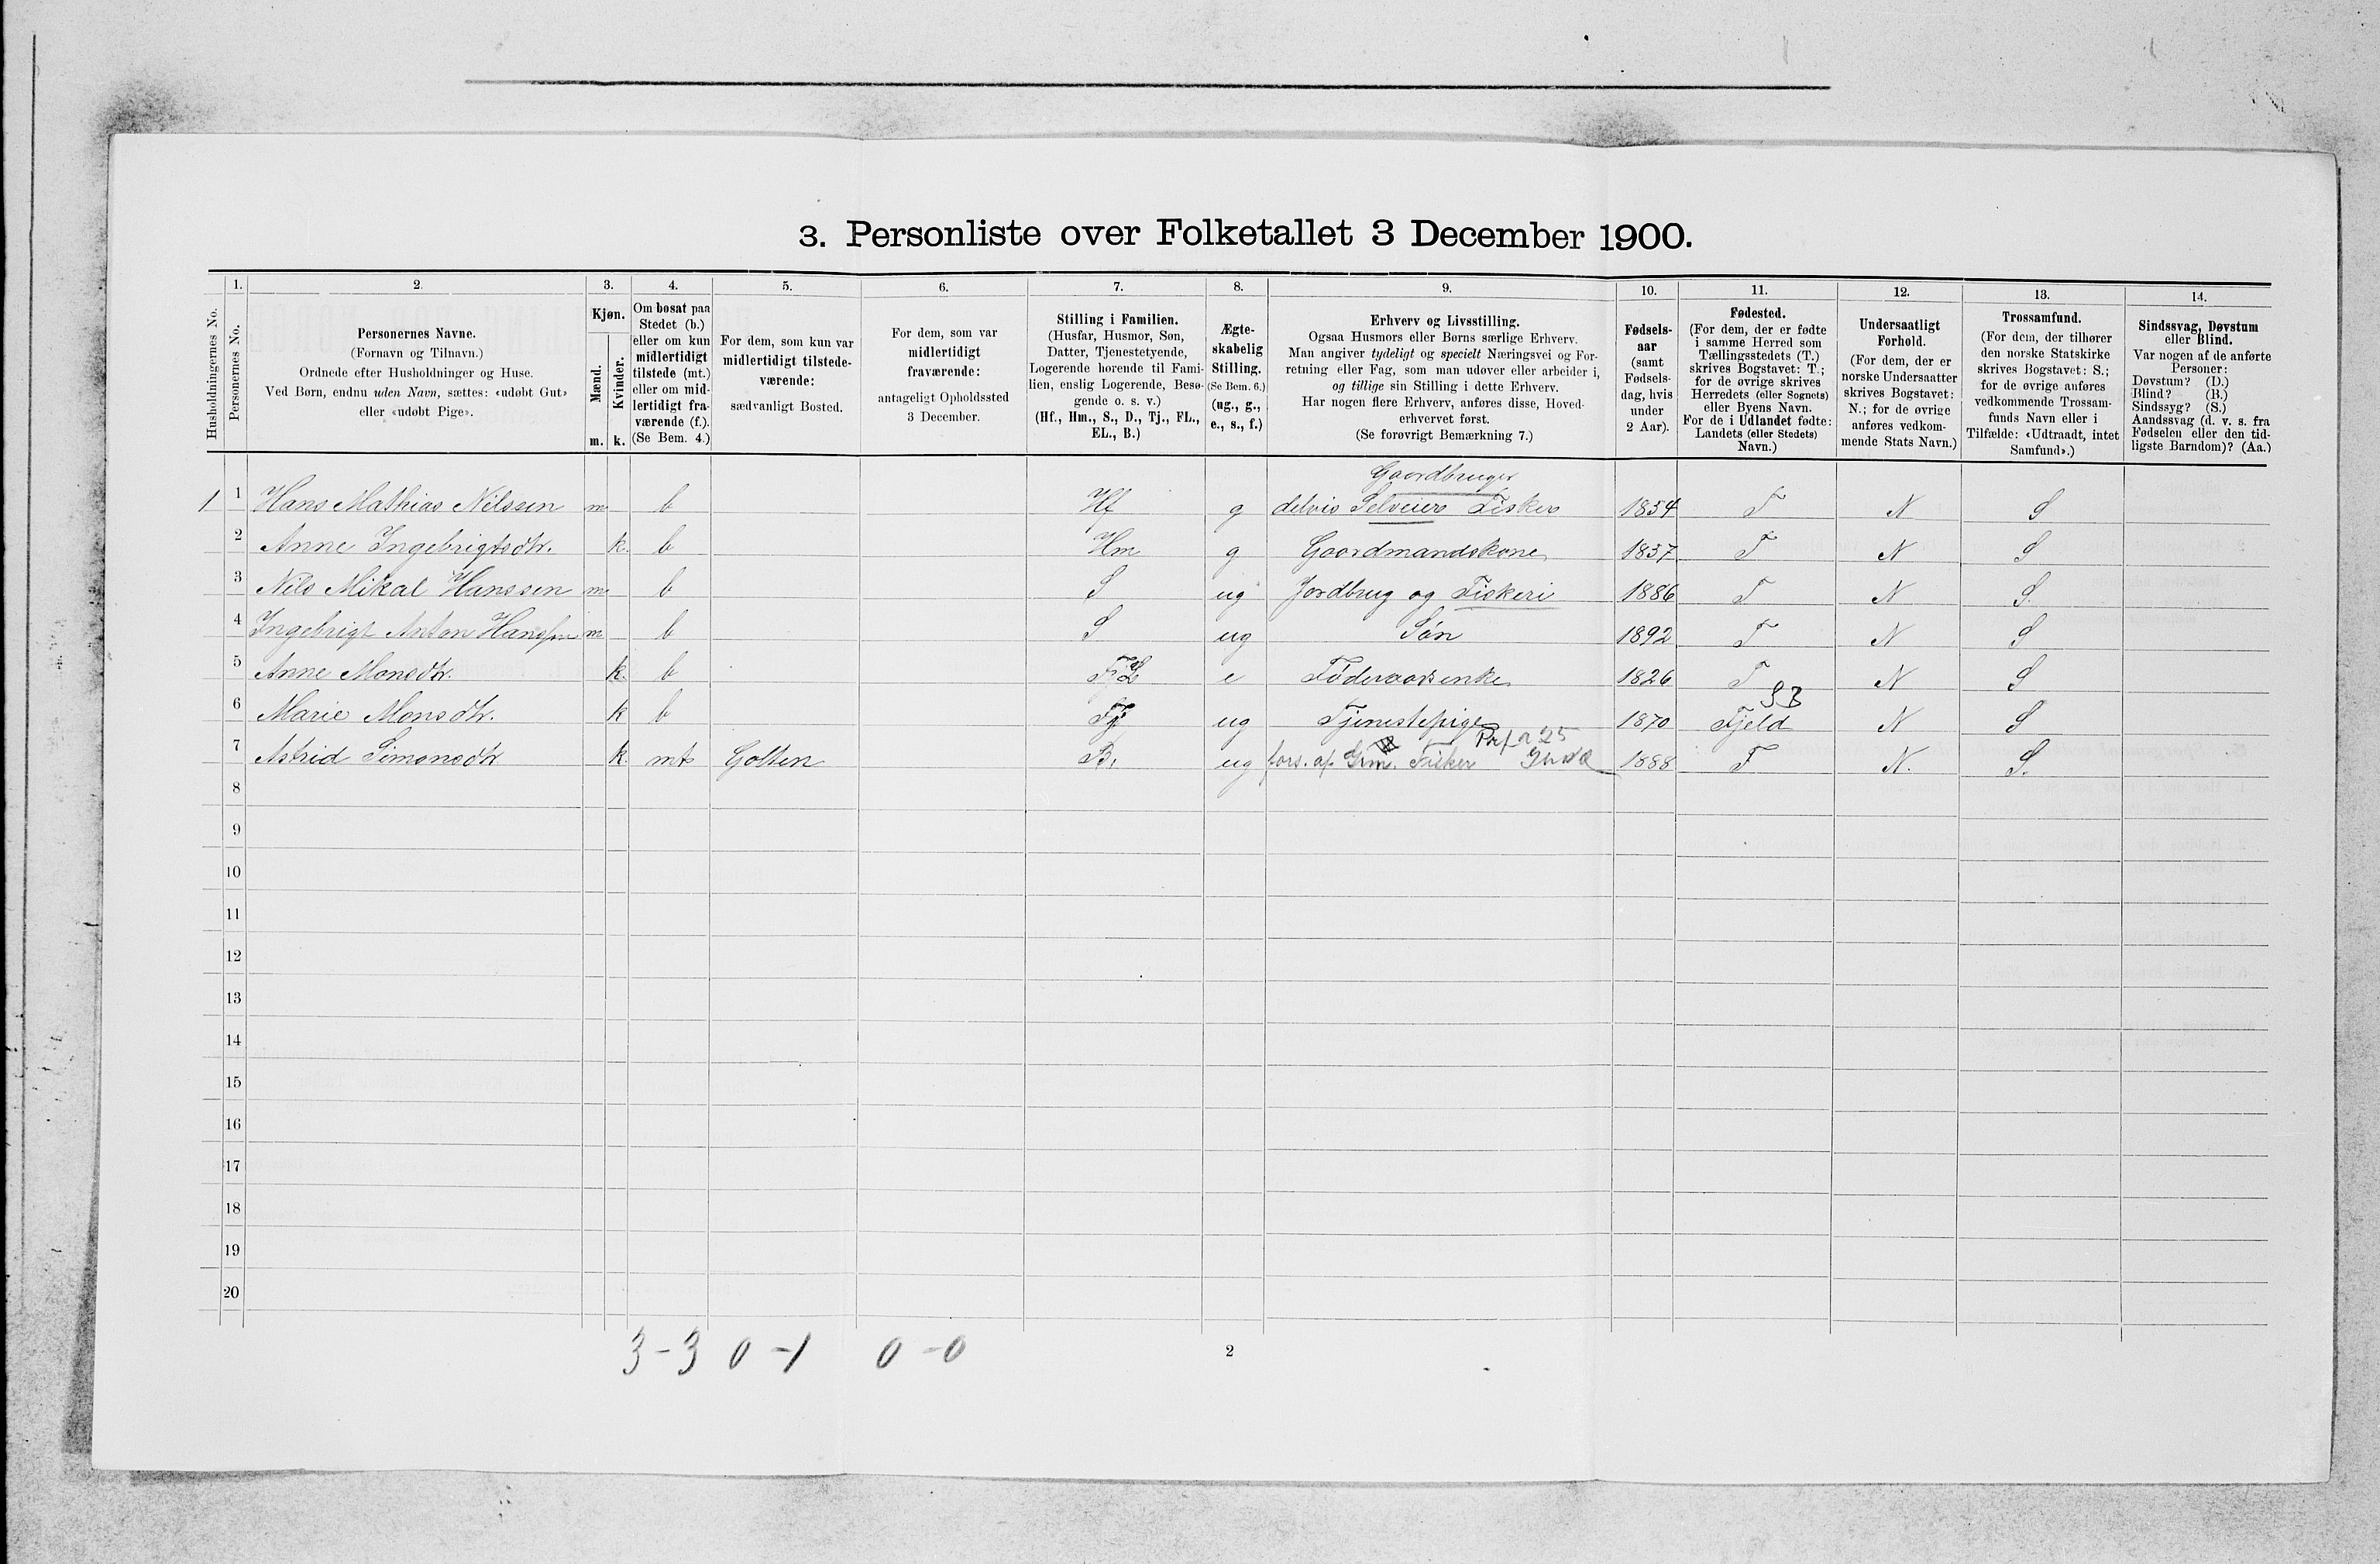 3. Personliste over Folketallet 3 December 1900.
Husholdningernes No.
1.
Personernes No.
2.
Personernes Navne.
(Fornavn og Tilnavn.)
Ordnede efter Husholdninger og Huse.
Ved Børn, endnu uden Navn, sættes: «udøbt Gut»
eller «udøbt Pige».
3.
Kjøn.
Mænd.
Kvinder.
m. k.
4.
Om bosat paa
Stedet (b.)
eller om kun
midlertidigt
tilstede (mt.)
eller om mid-
lertidigt fra-
værende (f.).
(Se Bem. 4.)
5.
For dem, som kun var
midlertidigt tilstede-
værende:
sædvanligt Bosted.
6.
For dem, som var
midlertidigt
fraværende:
antageligt Opholdssted
3 December.
7.
Stilling i Familien.
(Husfar, Husmor, Søn,
Datter, Tjenestetyende,
Logerende hørende til Fami-
lien, enslig Logerende, Besø-
gende o. s. v.)
(Hf., Hm., S., D., Tj., FL.,
EL., B.)
8.
Ægte-
skabelig
Stilling.
(Se Bem. 6.)
(ug., g.,
e., s., f.)
9.
Erhverv og Livsstilling.
Ogsaa Husmors eller Børns særlige Erhverv.
Man angiver tydeligt og specielt Næringsvei og For-
retning eller Fag, som man udøver eller arbeider i,
og tillige sin Stilling i dette Erhverv.
Har nogen flere Erhverv, anføres disse, Hoved-
erhvervet først.
(Se forøvrigt Bemærkning 7.)
10.
Fødsels-
aar
(samt
Fødsels-
dag, hvis
under
2 Aar).
11.
Fødested.
(For dem, der er fødte
i samme Herred som
Tællingsstedets (T.)
skrives Bogstavet: T.;
for de øvrige skrives
Herredets (eller Sognets)
eller Byens Navn.
For de i Udlandet fødte:
Landets (eller Stedets)
Navn.)
12.
Undersaatligt
Forhold.
(For dem, der er
norske Undersaatter
skrives Bogstavet:
N.; for de øvrige
anføres vedkom-
mende Stats Navn.)
13.
Trossamfund.
(For dem, der tilhører
den norske Statskirke
skrives Bogstavet: S.;
for de øvrige anføres
vedkommende Trossam-
funds Navn eller i
Tilfælde: «Udtraadt, intet
Samfund».)
14.
Sindssvag, Døvstum
eller Blind.
Var nogen af de anførte
Personer:
Døvstum? (D.)
Blind? (B.)
Sindssyg? (S.)
Aandssvag (d. v. s. fra
Fødselen eller den tid-
ligste Barndom)? (Aa.)
Gaardbruger
1 1 Hans Mathias Nilssen m b Hf g delvis Selveier Fisker 1854 T N S
2 Anne Ingebrigtsdtr. k. b Hm g Gaardmandskone 1857 T N S
3 Nils Mikal Hanssen m b S ug Jordbrug og Fiskeri 1886 T N S.
4 Ingebrigt Anton Hanssen m b S ug Søn 1892 T N S
5 Anne Monsdtr. k. b FL e Føderaadsenke 1826 T N S
6 Marie Monsdtr. k b Tj ug Tjenestepige 1870 Fjeld N S
7 Astrid Simonsdtr k. mt Golten B. ug fors. af Grm. Fisker 1888 T N. S.
8
9
10
11
12
13
14
15
16
17
18
19
20
3-3 0-1 0-0
2